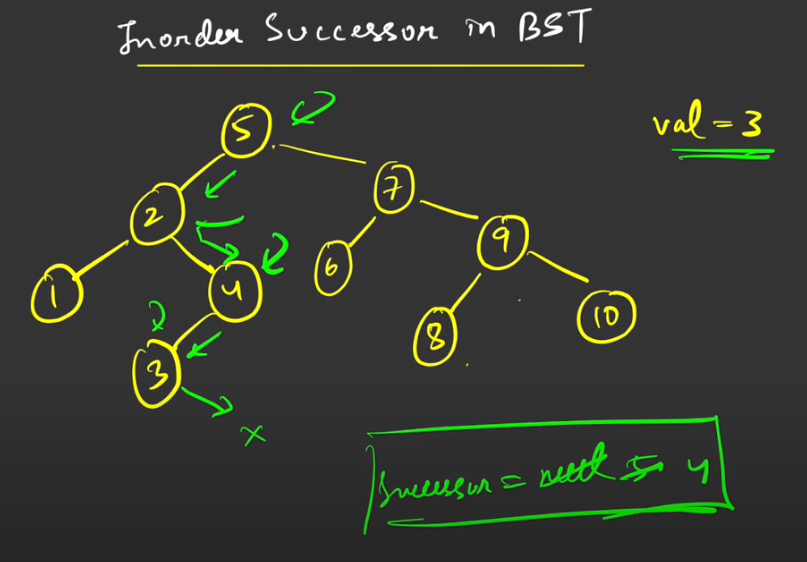 Inorder Successor in BST
val = 3
5
7
2
9
6
1
4
10
8
3
x
Successor = null 5 4